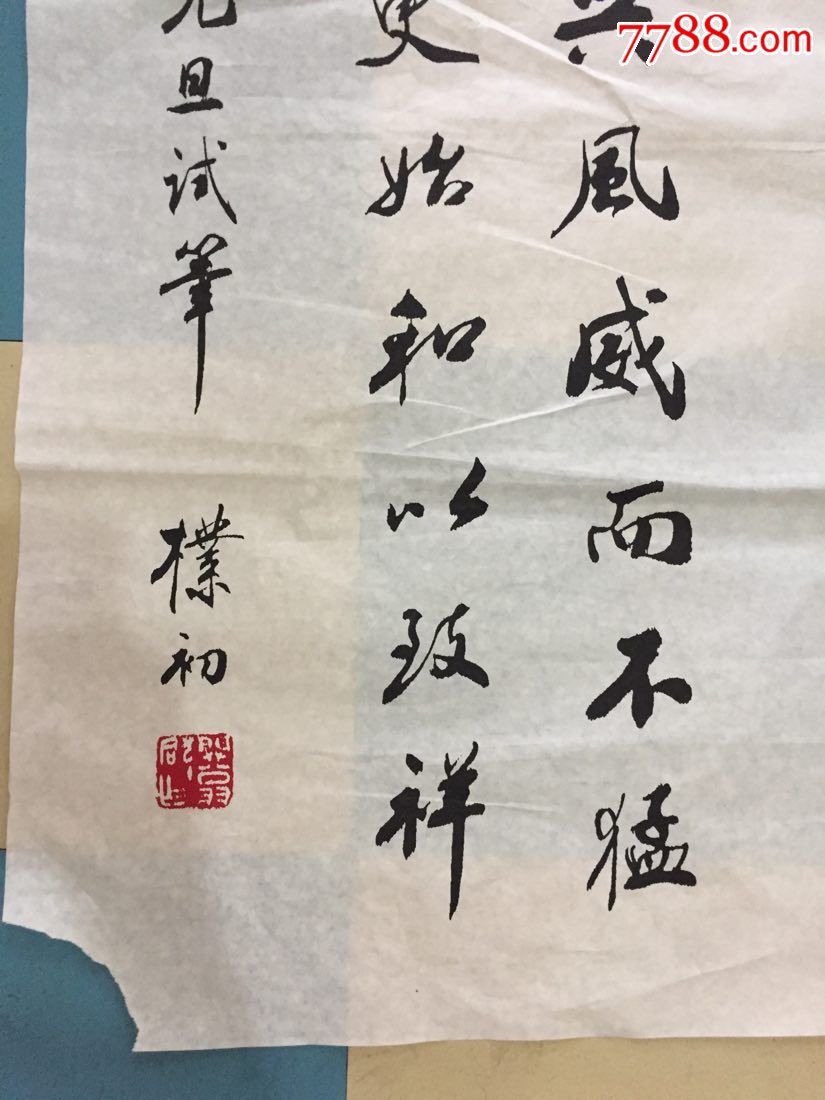 7788.com
風威而不猛
更始和以致祥
元旦試筆
樸初